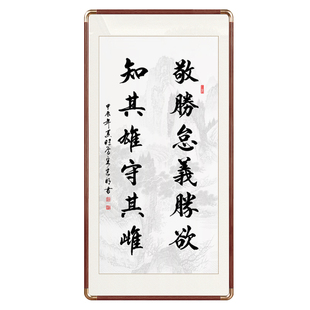 敬勝怠義勝欲
知其雄守其雌
甲辰年